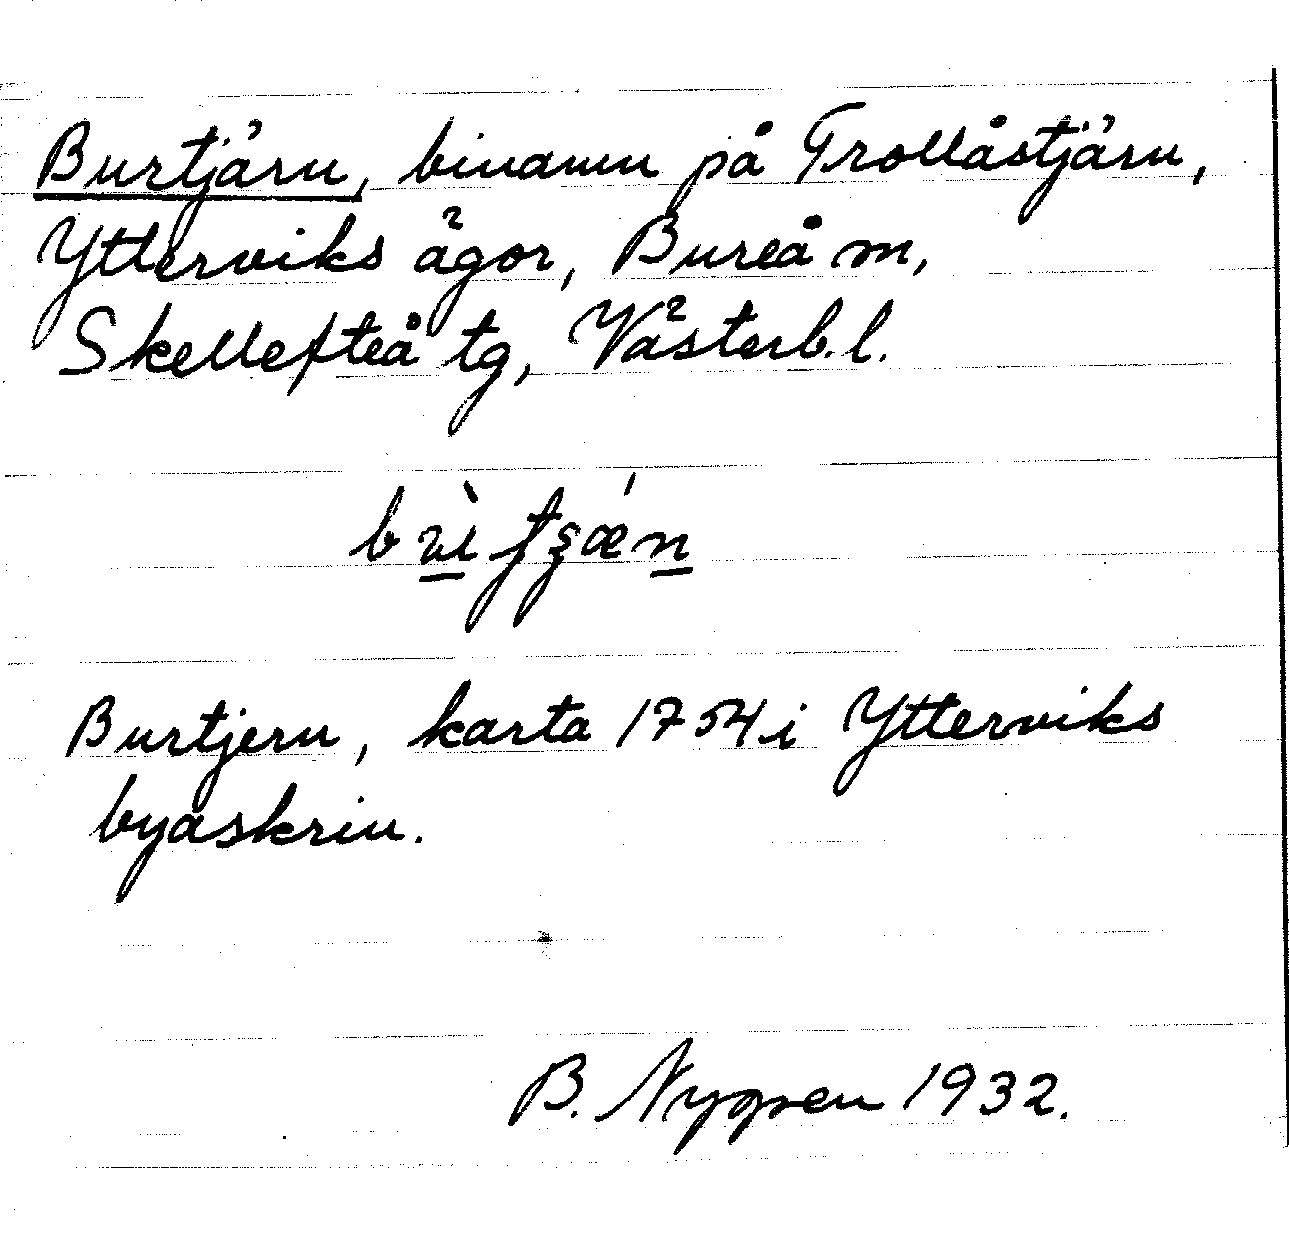 Burtjärn, binamn på Trollåstjärn,
Ytterviks ägor, Bureå m,
Skellefteå tg, Västerb.l.
Burtjern, karta 1754 i Ytterviks
byaskrin.
B. Nygren 1932.